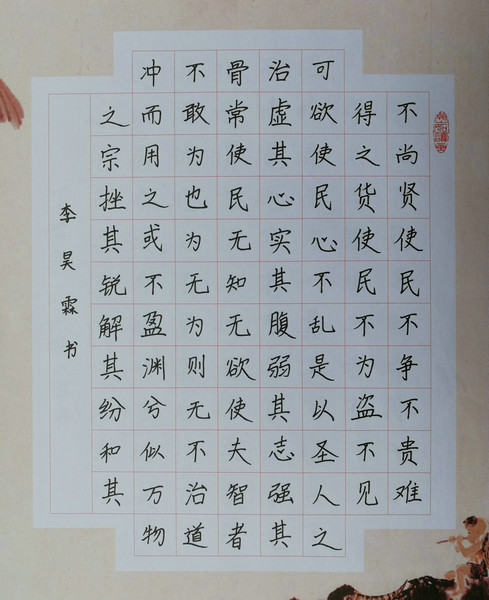 不尚贤使民不争不贵难
得之货使民不为盗不见
可欲使民心不乱是以圣人之
治虚其心实其腹弱其志强其
骨常使民无知无欲使夫智者
不敢为也为无为则无不治道
冲而用之或不盈渊兮似万物
之宗挫其锐解其纷和其
李昊霖书